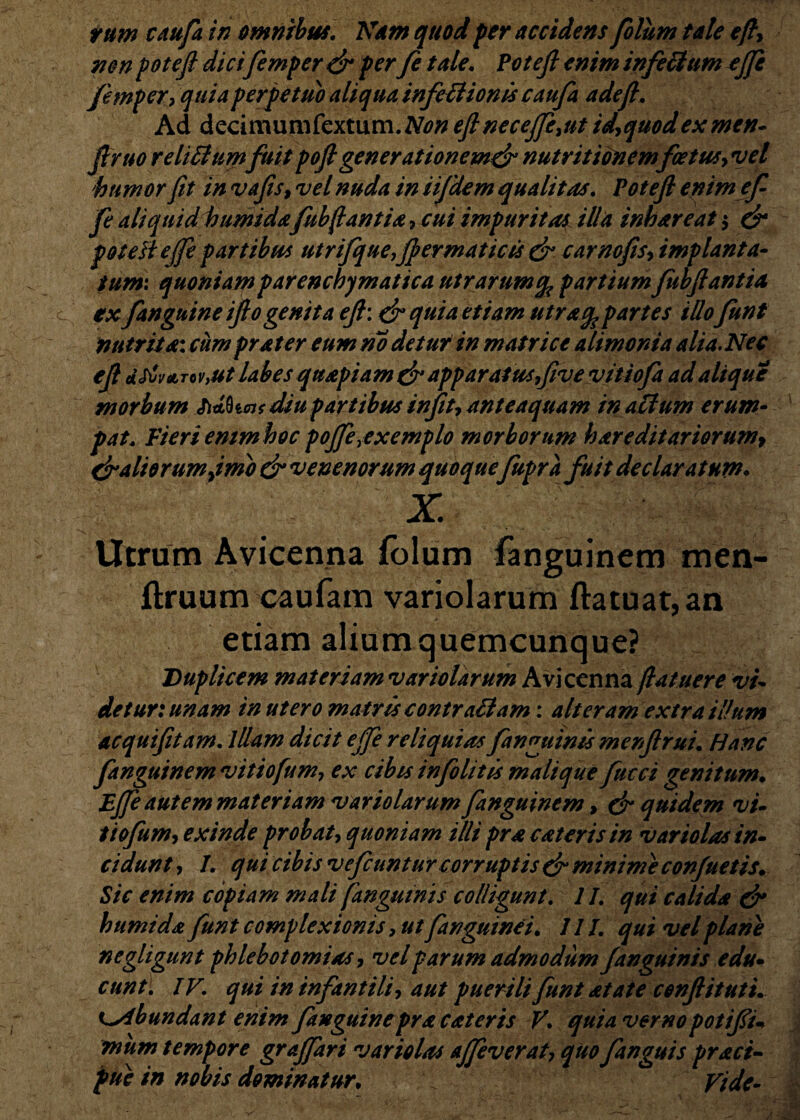 rum causa in omnibus. Nam quod per accidens solùm tale est,
non potest dici semper & per se tale. Potest enim infectum esse
semper, quia perpetuò aliqua infectionis causa adest.
Ad decimumsextum. Non est necesse, ut id, quod ex men-
struo relictum fuit post generationem & nutritionem fœtus, vel
humor sit in vasis, vel nuda in iisdem qualitas. Potest enim es-
se aliquid humida substantia, cui impuritas illa inhæreat; &
potest esse partibus utrisque, spermaticis & carnosis, implanta-
tum: quoniam parenchymatica utrarumq; partium substantia
ex sanguine isto genita est: & quia etiam utræq; partes illo sunt
nutritæ: cùm præter eum nō detur in matrice alimonia alia. Nec
est ἀδύνατον, ut labes quæpiam & apparatus, sive vitiosa ad aliquē
morbum διάθεσις diu partibus insit, anteaquam in actum erum-
pat. Fieri enim hoc posse, exemplo morborum hæreditariorum,
& aliorum, imò & venenorum quoque suprà fuit declaratum.
X.
Utrum Avicenna solum sanguinem men-
struum causam variolarum statuat, an
etiam alium quemcunque?
Duplicem materiam variolarum Avicenna statuere vi-
detur: unam in utero matris contractam: alteram extra illum
acquisitam. Illam dicit esse reliquias sanguinis menstrui. Hanc
sanguinem vitiosum, ex cibis insolitis malique succi genitum.
Esse autem materiam variolarum sanguinem, & quidem vi-
tiosum, exinde probat, quoniam illi præ cæteris in variolas in-
cidunt, I. qui cibis vescuntur corruptis & minimè consuetis.
Sic enim copiam mali sanguinis colligunt. II. qui calidæ &
humidæ sunt complexionis, ut sanguinei. III. qui vel planè
negligunt phlebotomias, vel parum admodùm sanguinis edu-
cunt. IV. qui in infantili, aut puerili sunt ætate constituti.
Abundant enim sanguine præ cæteris V. quia verno potissi-
mùm tempore grassari variolas asseverat, quo sanguis præci-
puè in nobis dominatur.
Vide-